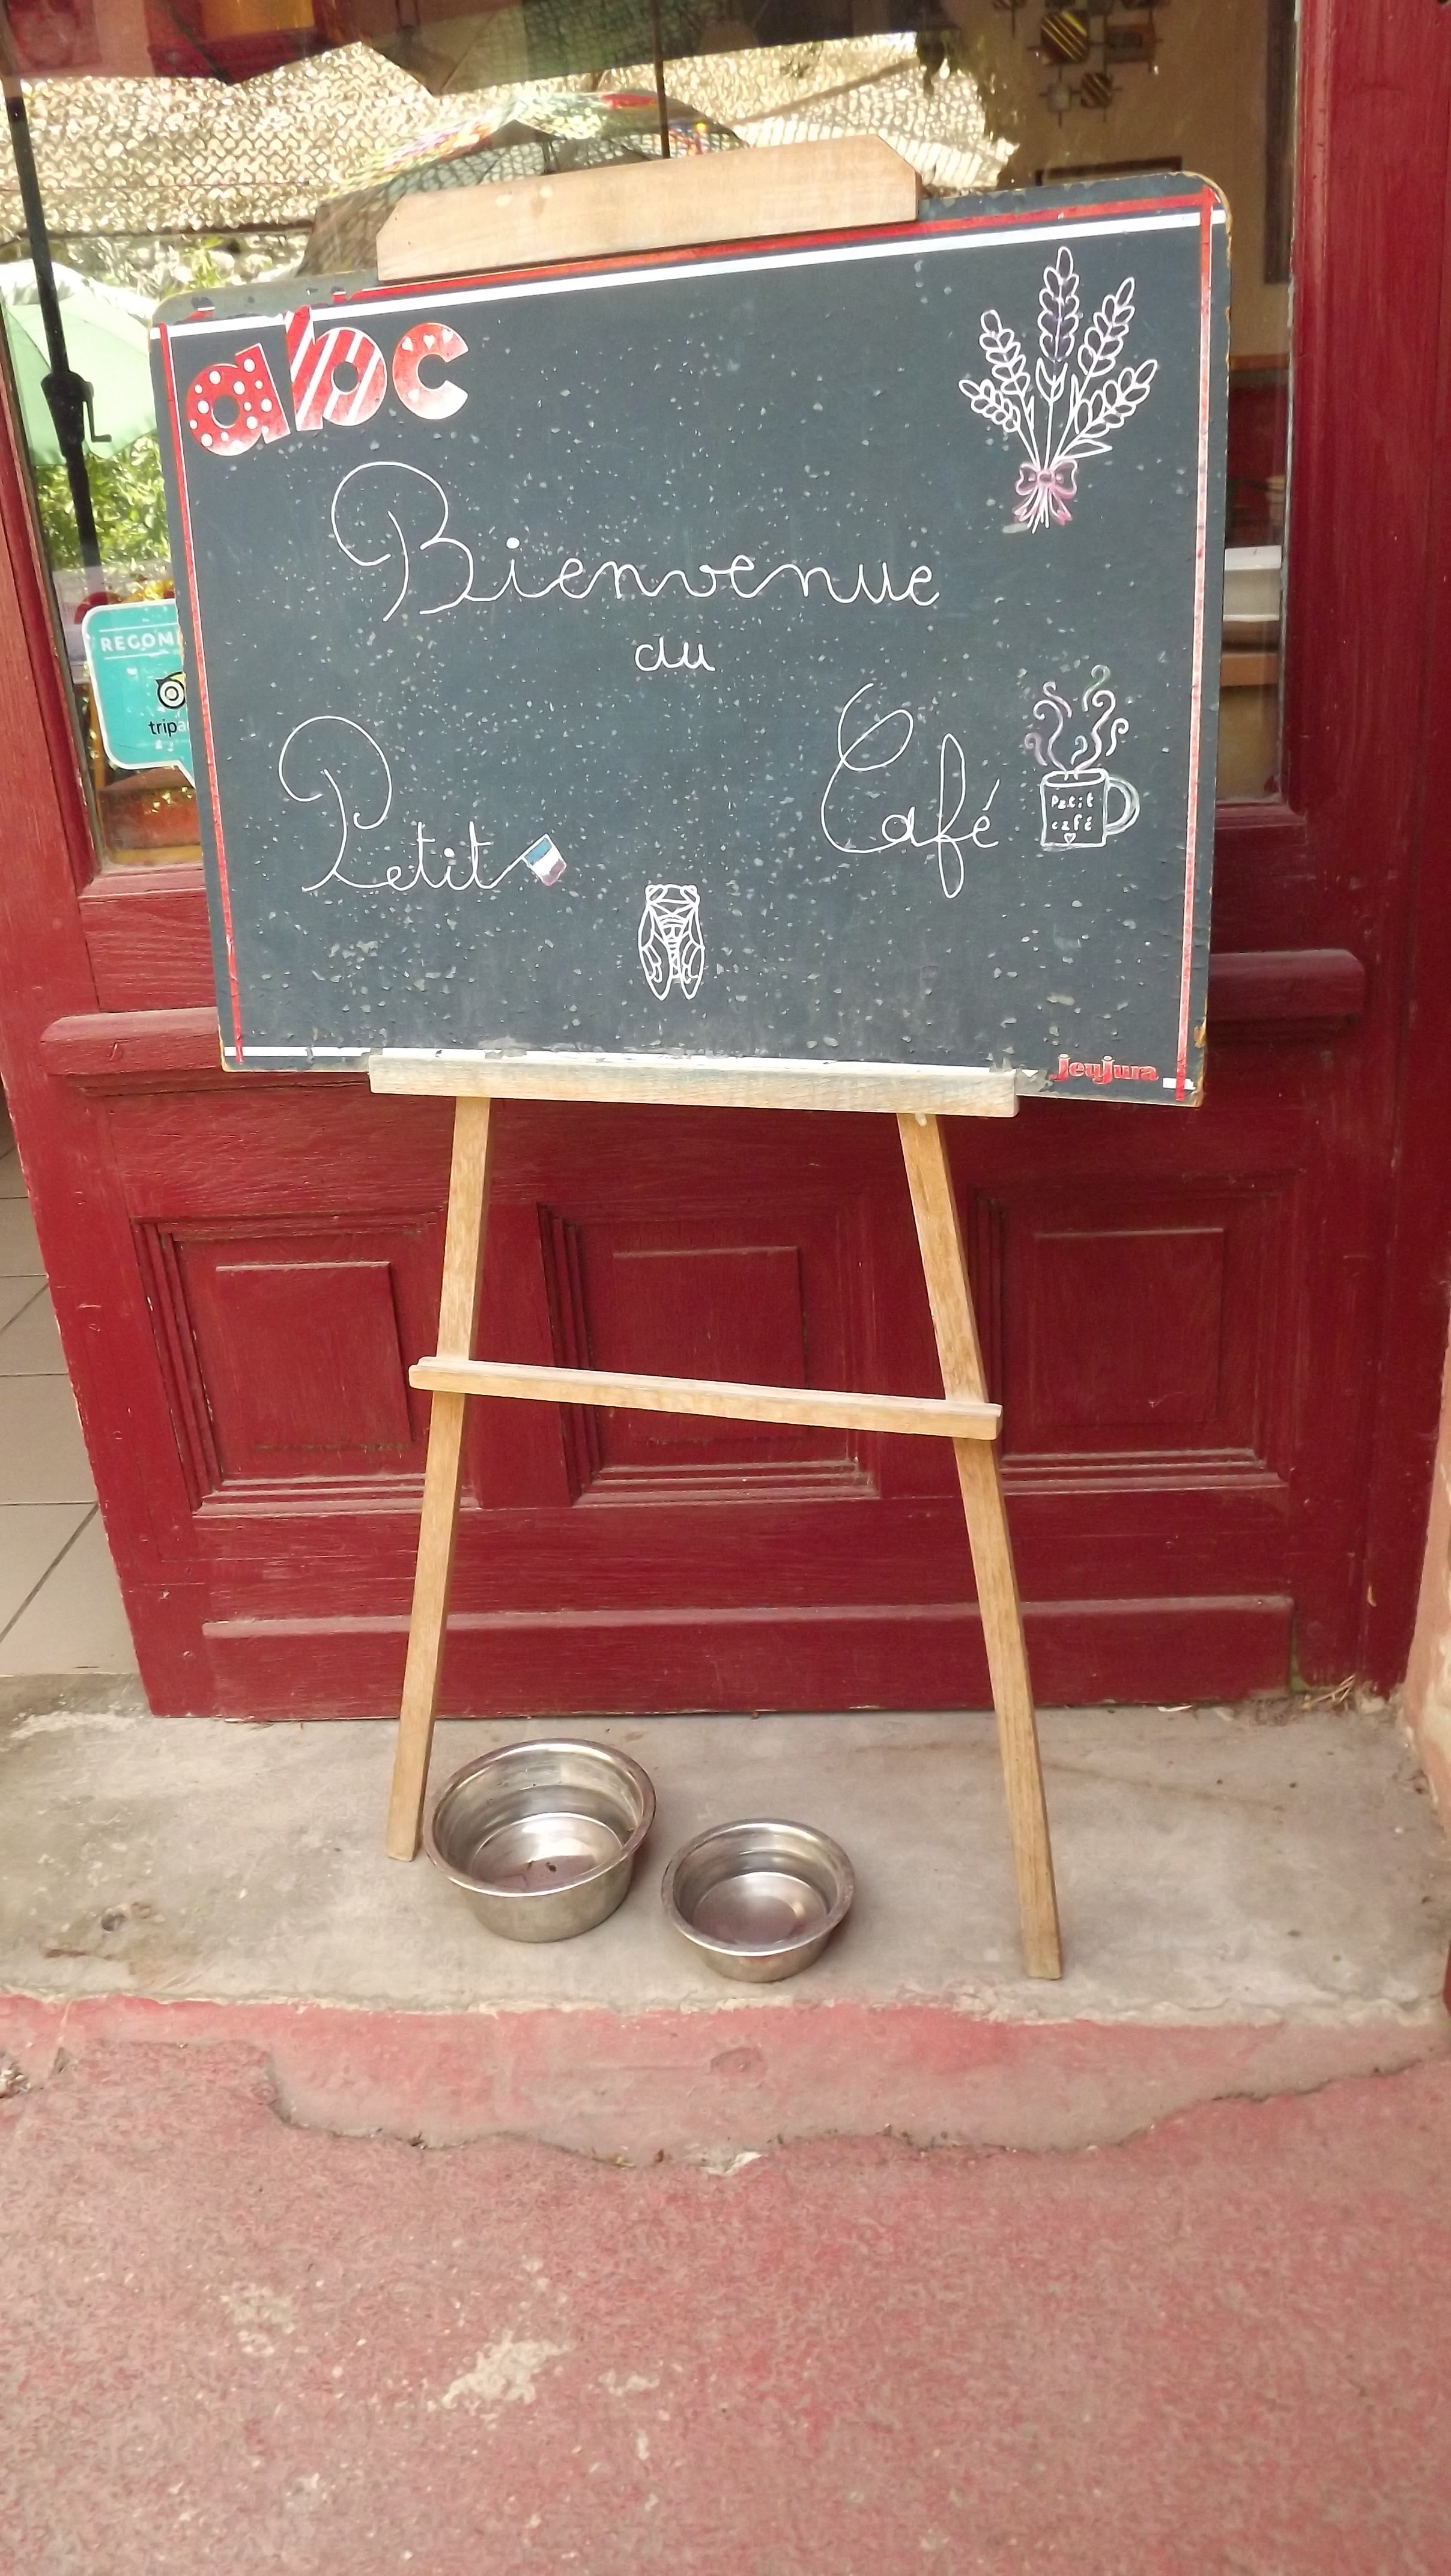 abc
Bienvenue
au
Petit Café
Petit
café
jeujura
RECOM
trip